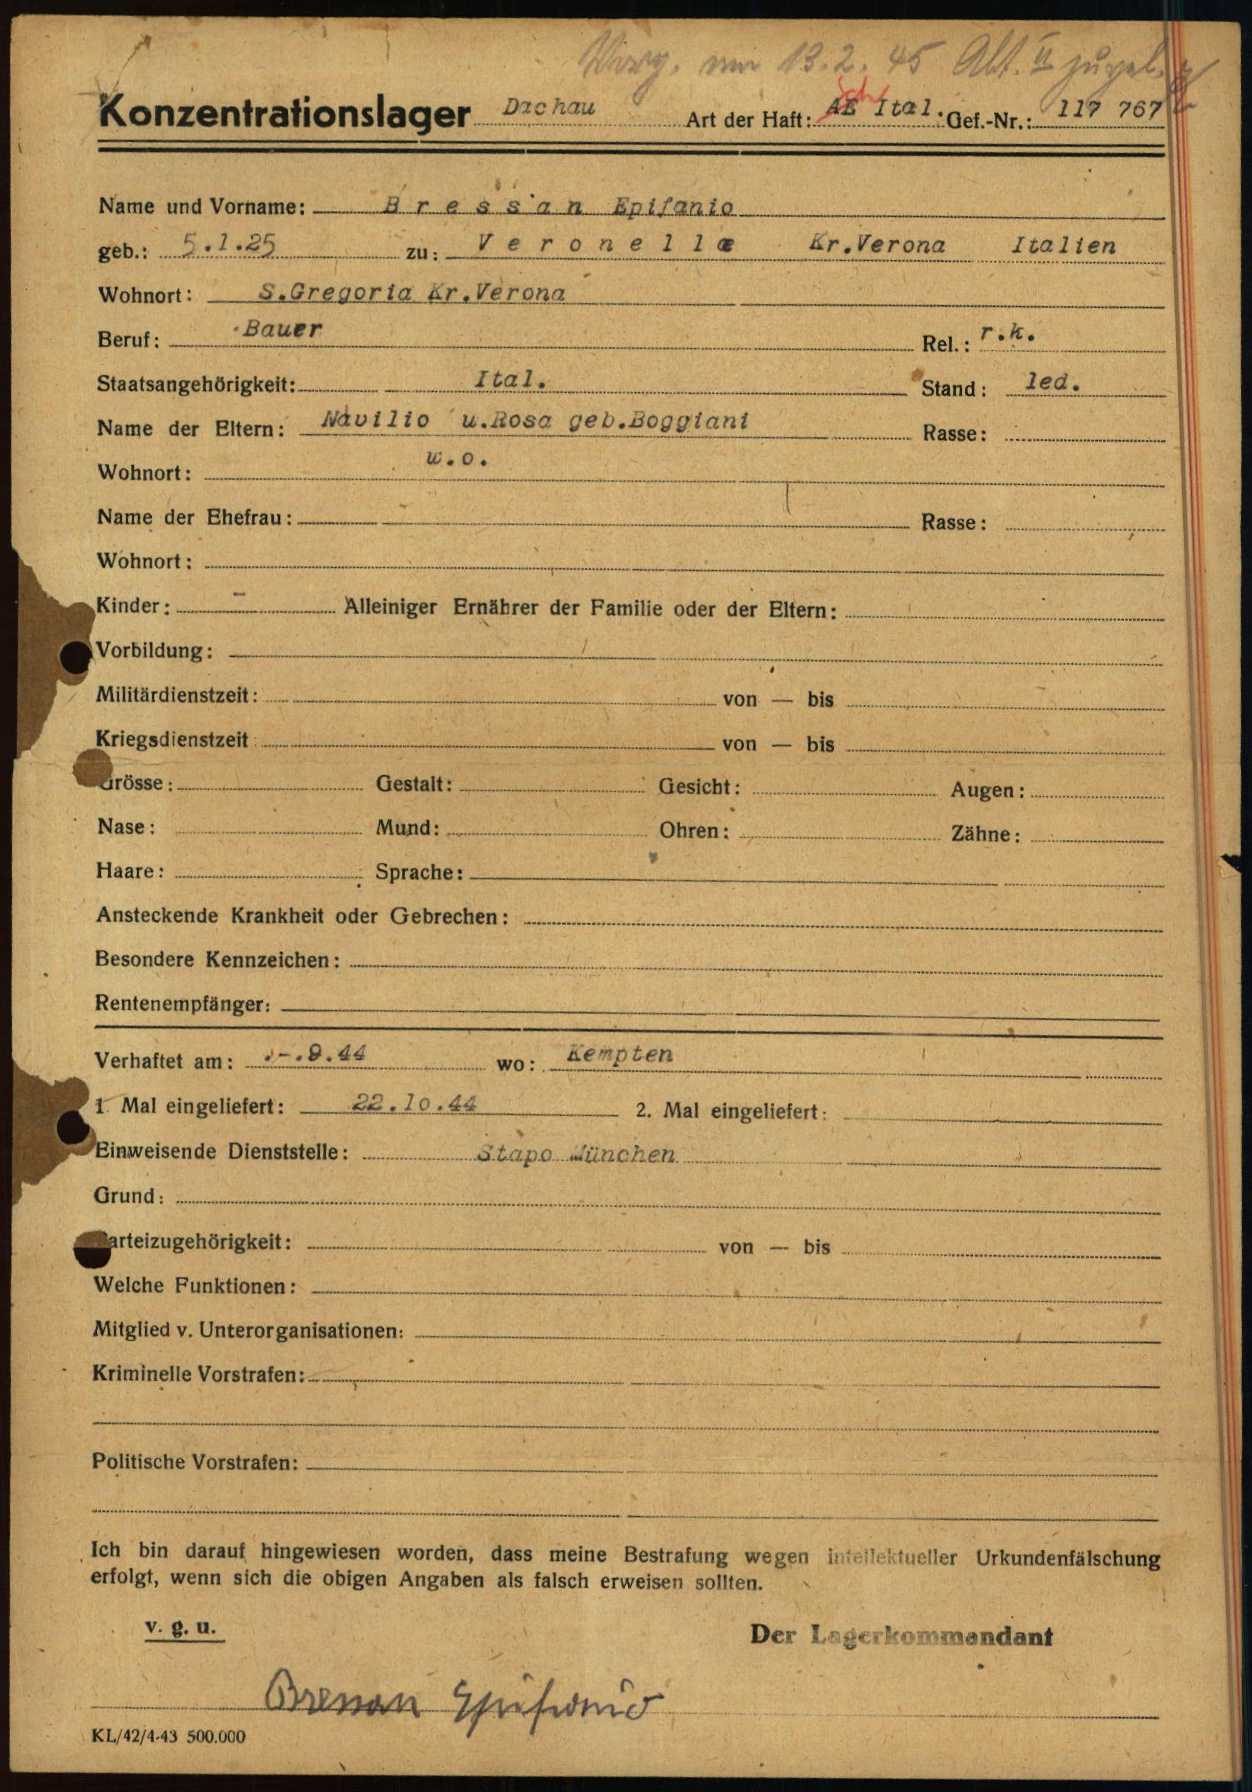 Vorg. am 13.2.45 Abt. II zugel.
Konzentrationslager Dachau Art der Haft: AE Sch Ital. Gef.-Nr.: 117 767
Name und Vorname: Bressan Epifanio
geb.: 5.1.25 zu: Veronella Kr.Verona Italien
Wohnort: S.Gregoria Kr.Verona
Beruf: Bauer Rel.: r.k.
Staatsangehörigkeit: Ital. Stand: led.
Name der Eltern: Navilio u.Rosa geb.Boggiani Rasse:
Wohnort: w.o.
Name der Ehefrau: Rasse:
Wohnort:
Kinder: - Alleiniger Ernährer der Familie oder der Eltern:
Vorbildung:
Militärdienstzeit: von — bis
Kriegsdienstzeit von — bis
Grösse: Gestalt: Gesicht: Augen:
Nase: Mund: Ohren: Zähne:
Haare: Sprache:
Ansteckende Krankheit oder Gebrechen:
Besondere Kennzeichen:
Rentenempfänger:
Verhaftet am: .-.9.44 wo: Kempten
1. Mal eingeliefert: 22.10.44 2. Mal eingeliefert:
Einweisende Dienststelle: Stapo München
Grund:
Parteizugehörigkeit: von — bis
Welche Funktionen:
Mitglied v. Unterorganisationen:
Kriminelle Vorstrafen:
Politische Vorstrafen:
Ich bin darauf hingewiesen worden, dass meine Bestrafung wegen intellektueller Urkundenfälschung
erfolgt, wenn sich die obigen Angaben als falsch erweisen sollten.
v. g. u. Der Lagerkommandant
Bressan Epifanio
KL/42/4-43 500.000